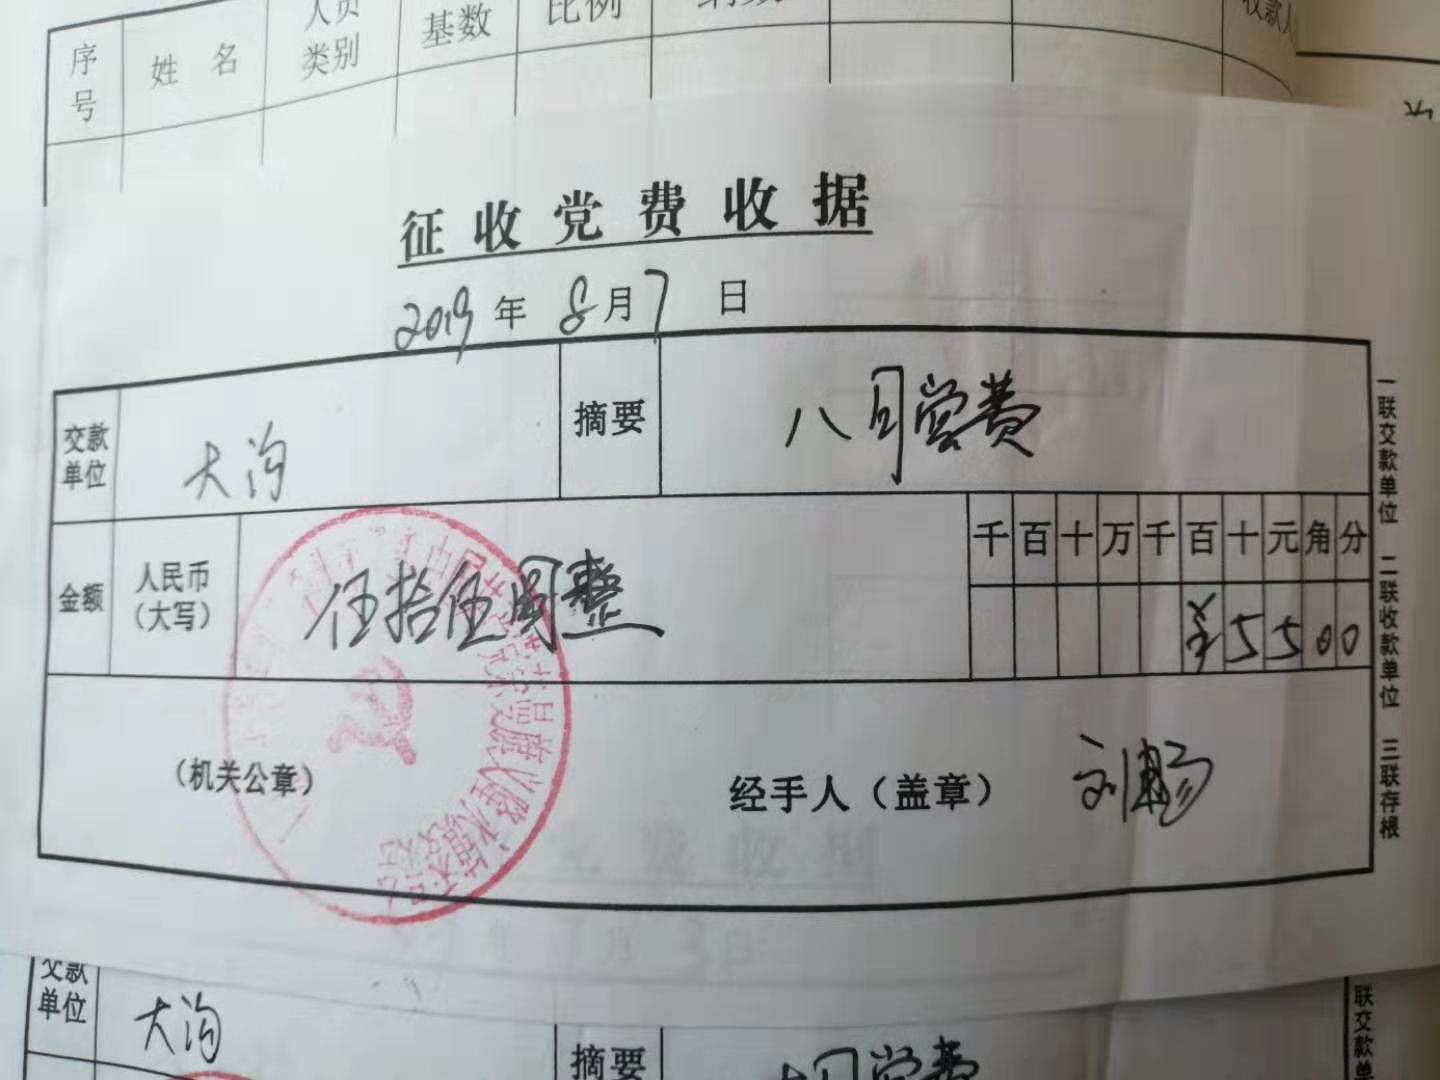 序号 姓名 人员类别 基数 比例
收款人
征收党费收据
2019年8月7日
交款单位 大沟 摘要 八月党费
金额 人民币(大写) 伍拾伍圆整 千 百 十 万 千 百 十 元 角 分
¥ 5 5 0 0
(机关公章) 经手人(盖章) 刘畅
一联交款单位 二联收款单位 三联存根
交款单位 大沟 摘要
联交款单